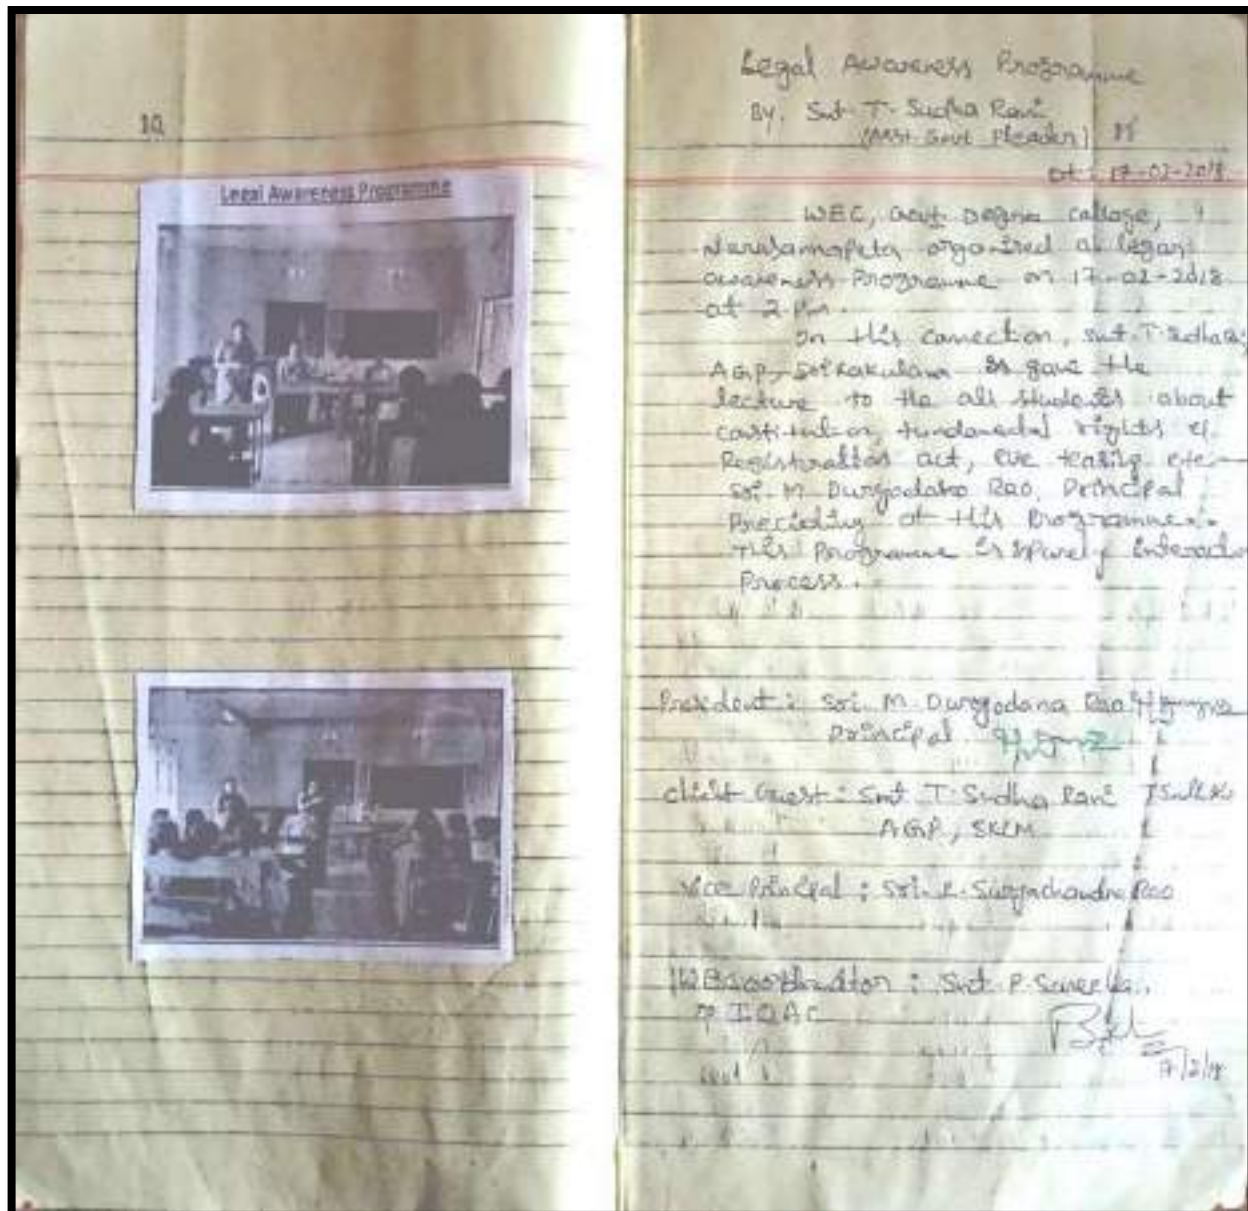 10
Legal Awareness Programme
Legal Awareness Programme
By. Smt. T. Sudha Rani
(Asst. Govt Pleader)
Dt: 17-02-2018.
WEC, Govt Degree College,
Narasannapeta organized a legal
awareness Programme on 17-02-2018
at 2 Pm.
On this conection, smt. T. Sudha
AGP, Srikakulam gave the
lecture to the all students about
constitution, fundamental rights
Registration act, eve teasing etc
Sri. M. Duryodana Rao, Principal
Preciding at this Programme.
This Programme is Purely
Process.
President : Sri. M. Duryodana Rao
Principal
Chief Guest : Smt T. Sudha Rani
AGP, SKLM
Vice Principal : Sri. Suryachandra Rao
WEC coordinator : Smt. P.
IQAC